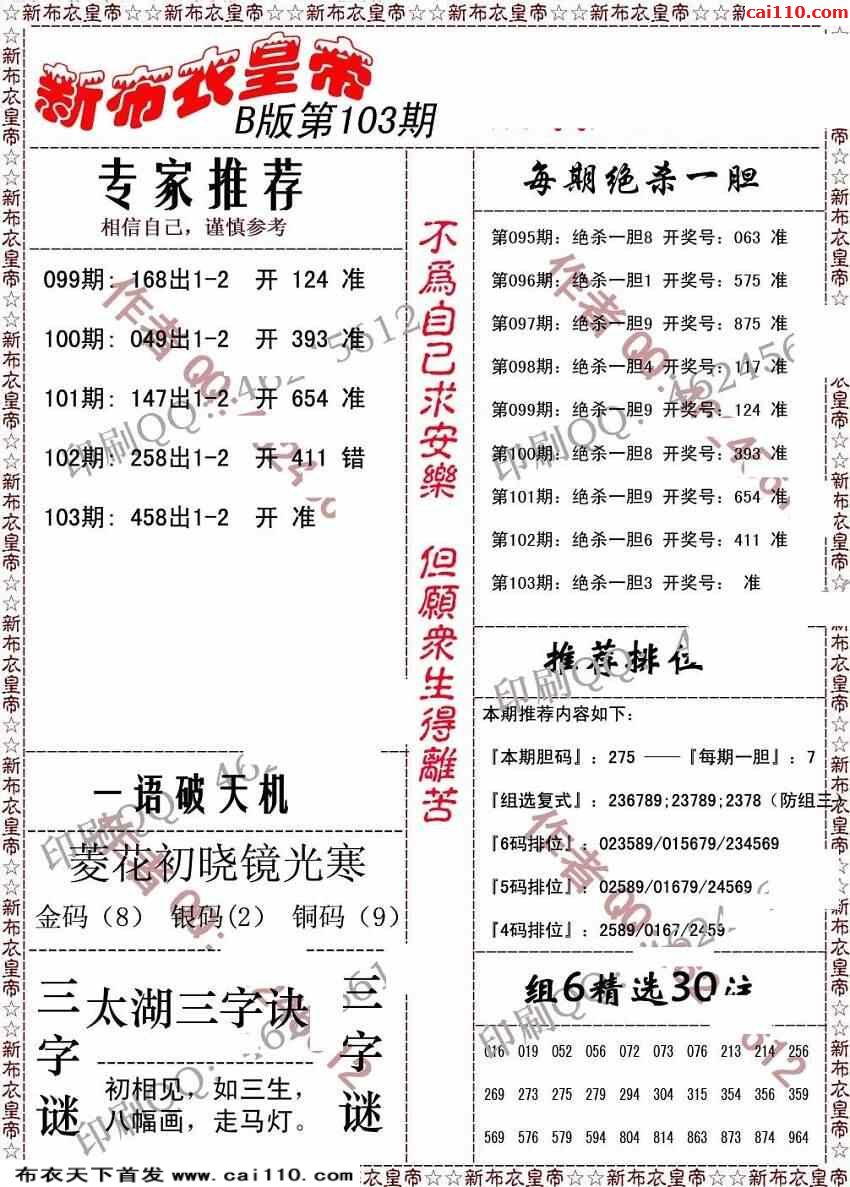 cai110.com
新布衣皇帝
B版第103期
专家推荐
相信自己，谨慎参考
099期: 168出1-2 开 124 准
100期: 049出1-2 开 393 准
101期: 147出1-2 开 654 准
102期: 258出1-2 开 411 错
103期: 458出1-2 开 准
一语破天机
菱花初晓镜光寒
金码（8） 银码(2) 铜码（9）
三字谜
太湖三字诀
初相见，如三生，
八幅画，走马灯。
三字谜
不為自己求安樂 但願衆生得離苦
每期绝杀一胆
第095期: 绝杀一胆8 开奖号: 063 准
第096期: 绝杀一胆1 开奖号: 575 准
第097期: 绝杀一胆9 开奖号: 875 准
第098期: 绝杀一胆4 开奖号: 117 准
第099期: 绝杀一胆9 开奖号: 124 准
第100期: 绝杀一胆8 开奖号: 393 准
第101期: 绝杀一胆9 开奖号: 654 准
第102期: 绝杀一胆6 开奖号: 411 准
第103期: 绝杀一胆3 开奖号: 准
推荐排位
本期推荐内容如下:
『本期胆码』: 275 ——『每期一胆』: 7
『组选复式』: 236789;23789;2378（防组三）
『6码排位』: 023589/015679/234569
『5码排位』: 02589/01679/24569
『4码排位』: 2589/0167/2459
组6精选30注
016 019 052 056 072 073 076 213 214 256
269 273 275 279 294 304 315 354 356 359
569 576 579 594 804 814 863 873 874 964
布衣天下首发 www.cai110.com